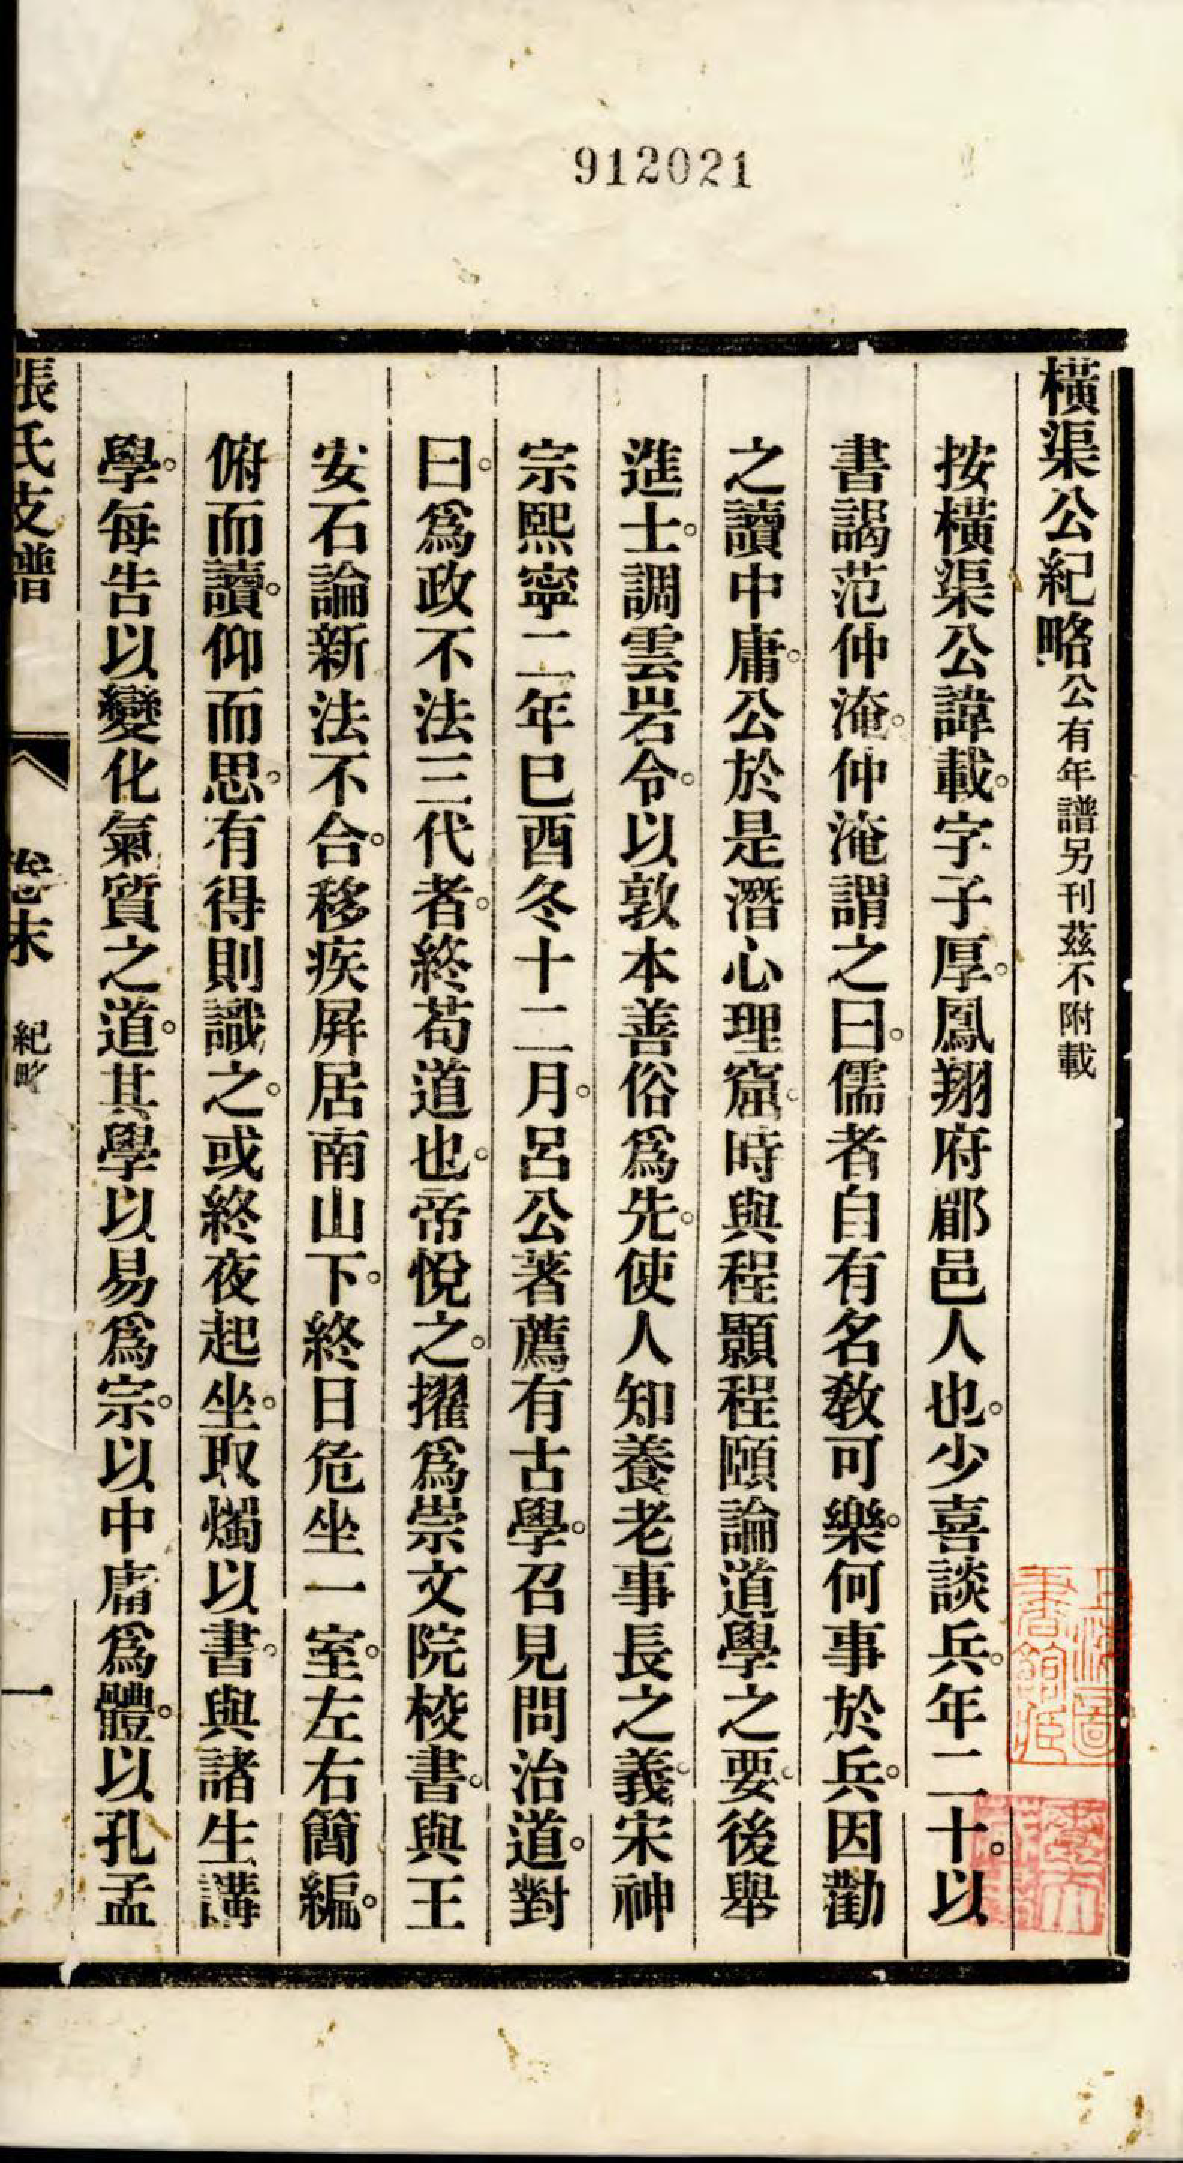 912021
橫渠公紀略公有年譜另刊茲不附載
按橫渠公諱載。字子厚。鳳翔府郿邑人也。少喜談兵。年二十。以
書謁范仲淹。仲淹謂之曰。儒者自有名教可樂。何事於兵。因勸
之讀中庸。公於是潛心理窟。時與程顥程頤論道學之要。後舉
進士。調雲岩令。以敦本善俗爲先。使人知養老事長之義。宋神
宗熙寧二年巳酉冬十二月。呂公著薦有古學。召見問治道。對
曰。爲政不法三代者。終苟道也。帝悅之。擢爲崇文院校書。與王
安石論新法不合。移疾屛居南山下。終日危坐一室。左右簡編。
俯而讀。仰而思。有得則識之。或終夜起坐。取燭以書。與諸生講
學。每告以變化氣質之道。其學以易爲宗。以中庸爲體。以孔孟
張氏支譜 卷末 紀略 一
上海圖書館藏